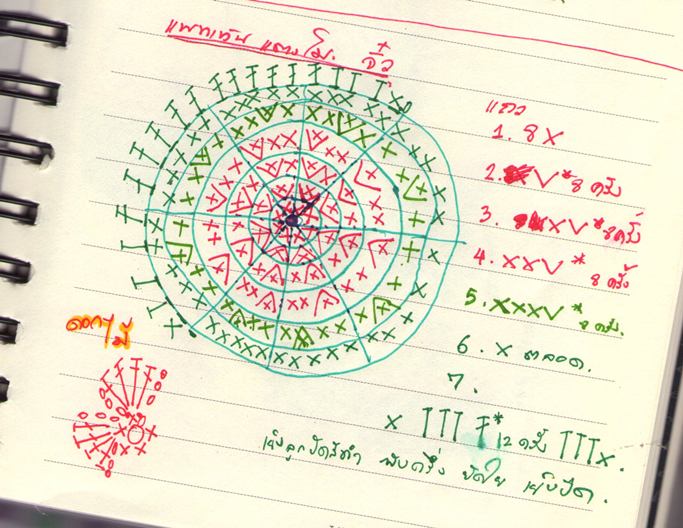 แพทเทิน แตงโม. จิ๋ว
แถว
1. 8 X
2. V * 8 ครั้ง
3. XV * 8 ครั้ง
4. XXV * 8 ครั้ง
5. XXXV * 8 ครั้ง.
6. X ตลอด.
7.
X TTT Ŧ * 12 ครั้ง TTTX.
เย็บลูกปัดสีดำ พับครึ่ง ยัดใย เย็บปิด.
ดอกไม้